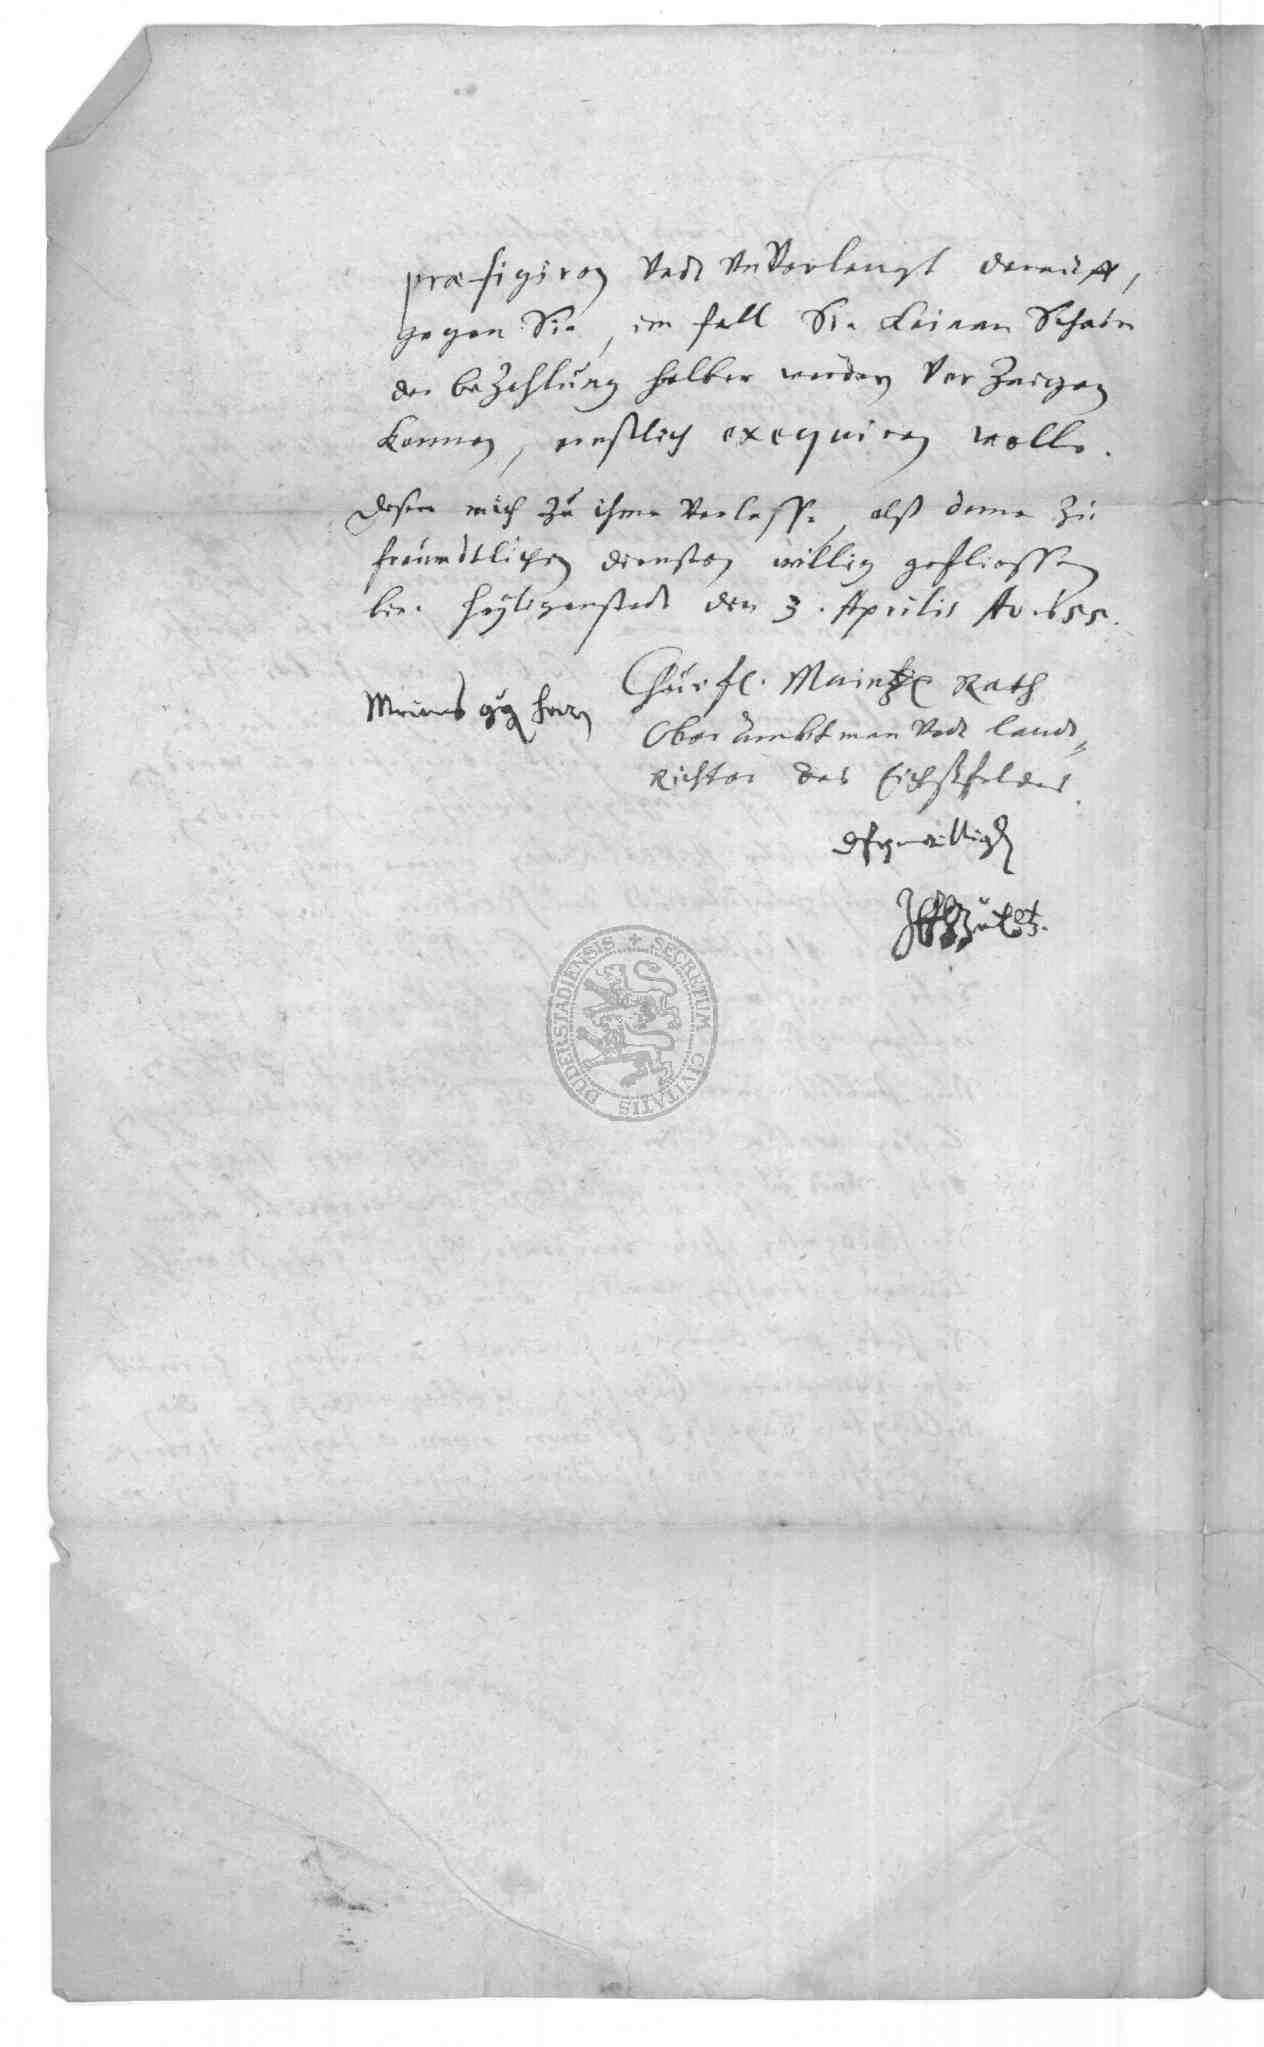 præfigiren Vndt VnVerlengt darauff,
gegen Sie, im fall Sie Keinen Schein
der beZahlung halber werden VorZeigen
Können, ernstlich exequiren wolle.
deßen mich zu ihme Verlasse, alß deme Zu
freundtlichen diensten willig gefliessen
bin. Heyligenstadt den 3. Aprilis Ao 655.
Churfl. Maintz Rath
Meines herrn
Ober Ambtman Vndt Landt
Richter des Eichßfeldes.
dienstwilliger
SECRETUM CIVITATIS DUDERSTADIENSIS